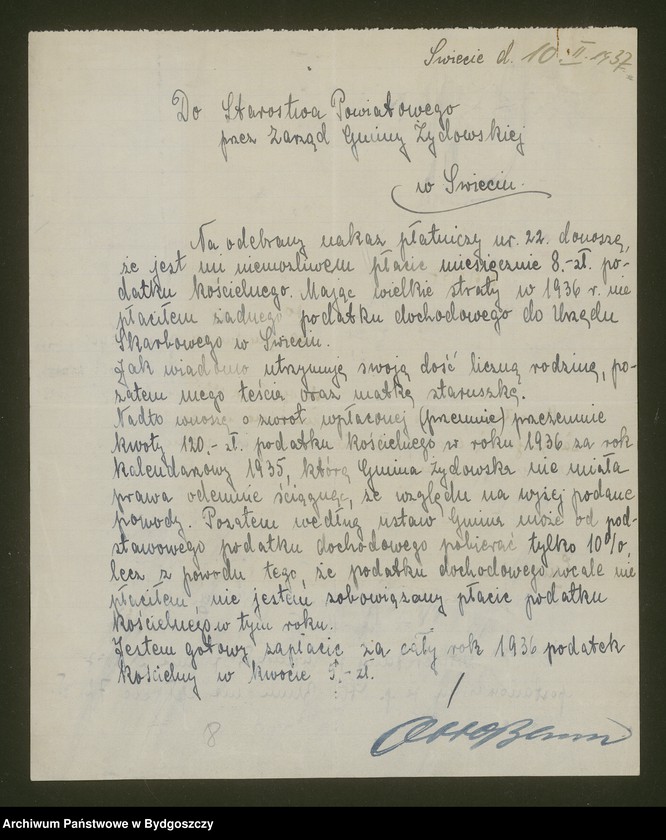 Swiecie d. 10. II. 1937
Do Starostwa Powiatowego
przez Zarząd Gminy Żydowskiej
w Swieciu.
Na odebrany nakaz płatniczy nr. 22. donoszę,
że jest mi niemożliwem płacic miesięcznie 8.- zł. po-
datku kościelnego. Mając wielkie straty w 1936 r. nie
płaciłem żadnego podatku dochodowego do Urzędu
Skarbowego w Swieciu.
Jak wiadomo utrzymuję swoją dość liczną rodzinę, po-
zatem mego teścia oraz matkę staruszkę.
Nadto wnoszę o zwrot wpłaconej (przemnie) przezemnie
kwoty 120.- zł. podatku kościelnego w roku 1936 za rok
kalendarzowy 1935, którą Gmina Żydowska nie miała
prawa odemnie ściągnąć, ze względu na wyżej podane
powody. Pozatem według ustaw Gmina może od pod-
stawowego podatku dochodowego pobierać tylko 10%,
lecz z powodu tego, że podatku dochodowego wcale nie
płaciłem, nie jestem zobowiązany płacic podatku
kościelnego w tym roku.
Jestem gotowy zapłacic za cały rok 1936 podatek
kościelny w kwocie 5.- zł.
Otto
8
Archiwum Państwowe w Bydgoszczy